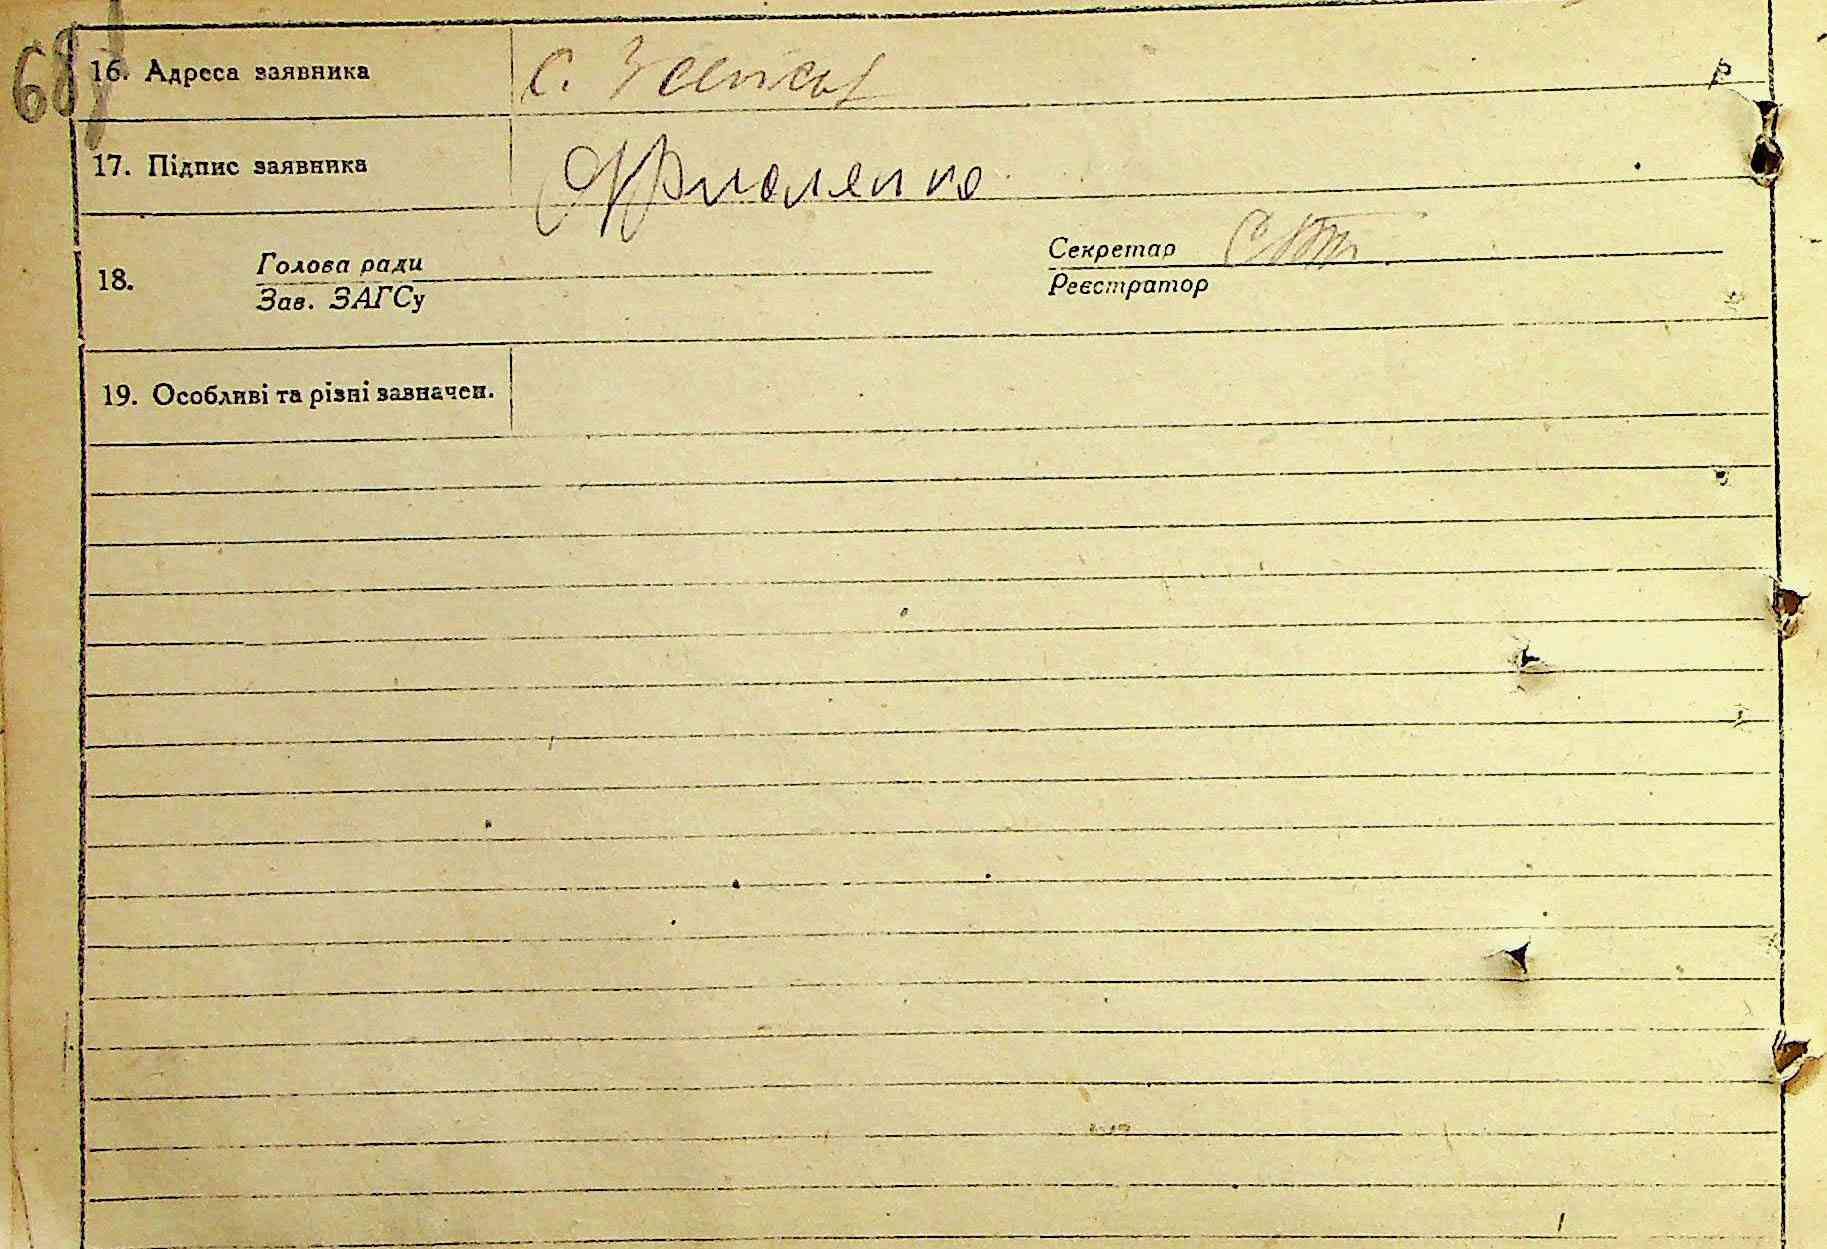 68
16. Адреса заявника с.
17. Підпис заявника Ярмоленко
18. Голова ради Секретар
Зав. ЗАГСу Реєстратор
19. Особливі та різні зазначен.